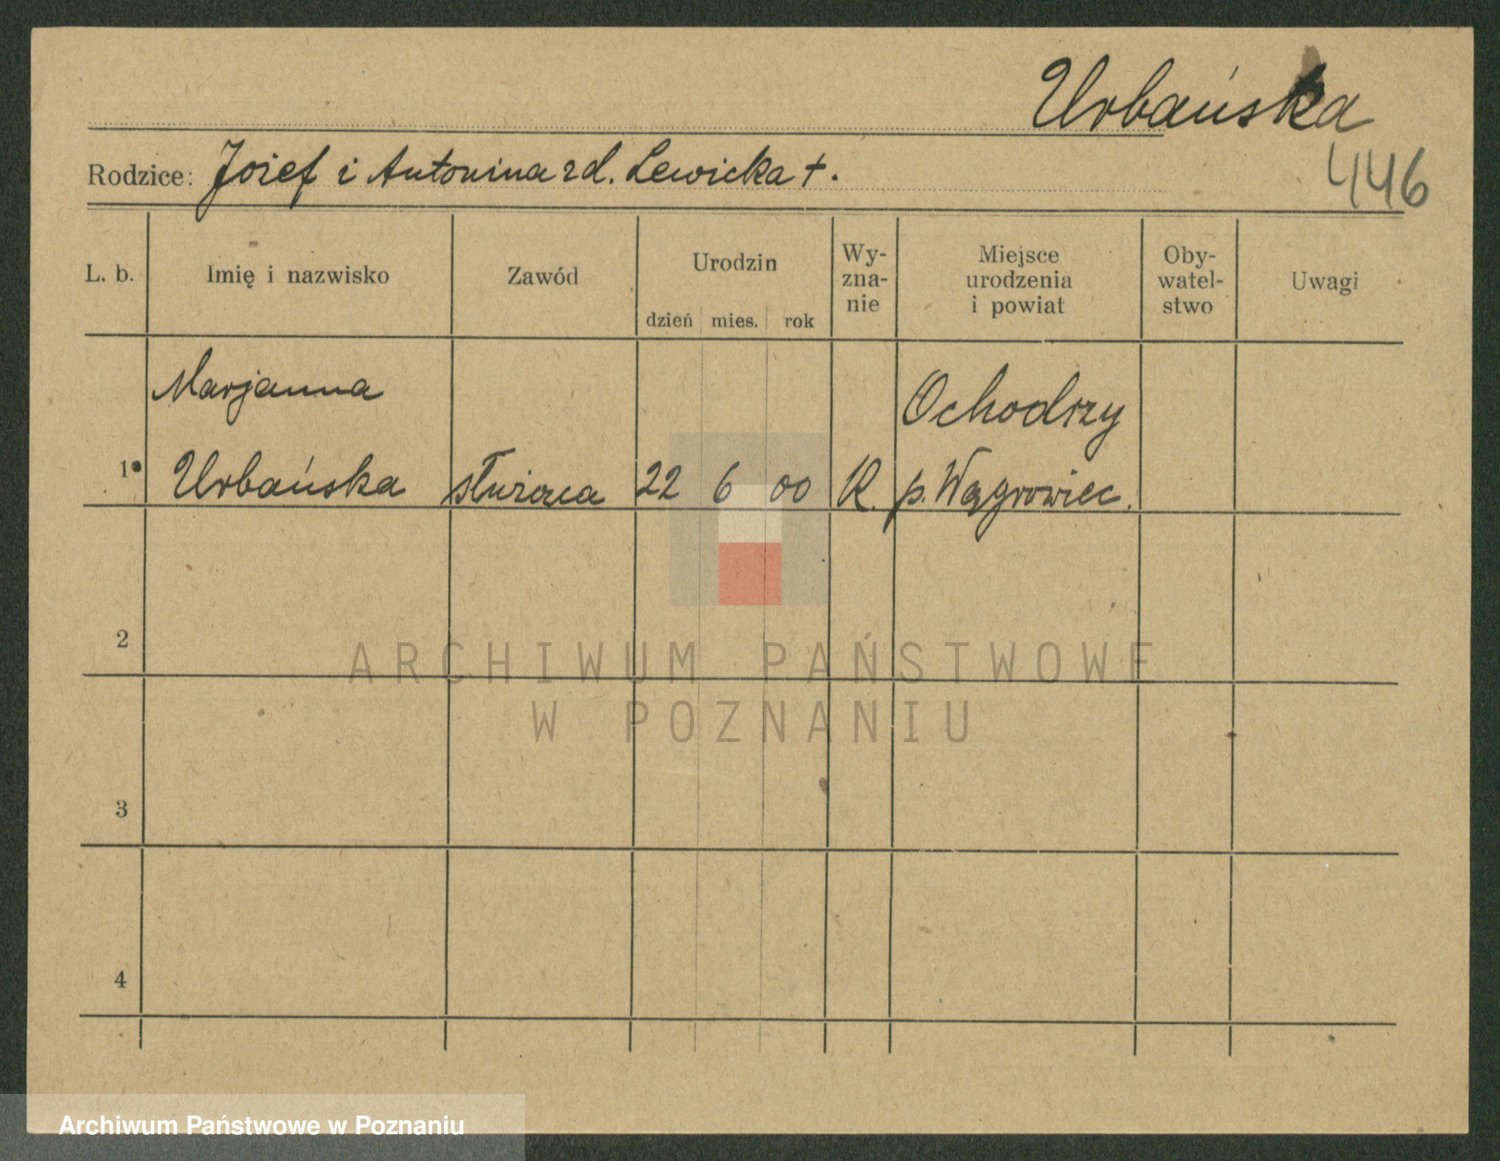 Urbańska
446
Rodzice: Józef i Antonina zd. Lewicka +.
L. b. Imię i nazwisko Zawód Urodzin Wyznanie Miejsce urodzenia i powiat Obywatelstwo Uwagi
dzień mies. rok
Marjanna Ochodzy
1 Urbańska służąca 22 6 00 R. p. Wągrowiec.
2
3
4
ARCHIWUM PAŃSTWOWE
W POZNANIU
Archiwum Państwowe w Poznaniu